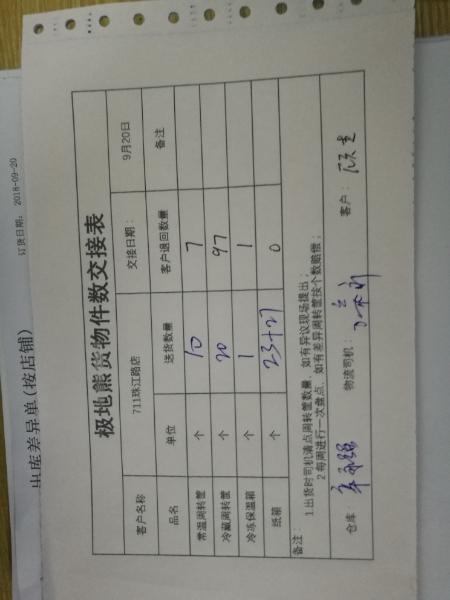 出库差异单(按店铺)
订货日期: 2018-09-20
极地熊货物件数交接表
客户名称 711珠江路店 交接日期: 9月20日
品名 单位 送货数量 客户退回数量 备注
常温周转筐 个 10 7
冷藏周转筐 个 20 97
冷冻保温箱 个 1 1
纸箱 个 23+27 0
备注:
1.出货时司机清点周转筐数量,如有异议现场提出;
2.每周进行一次盘点,如有差异周转筐按个数赔偿;
仓库: 物流司机: 客户: